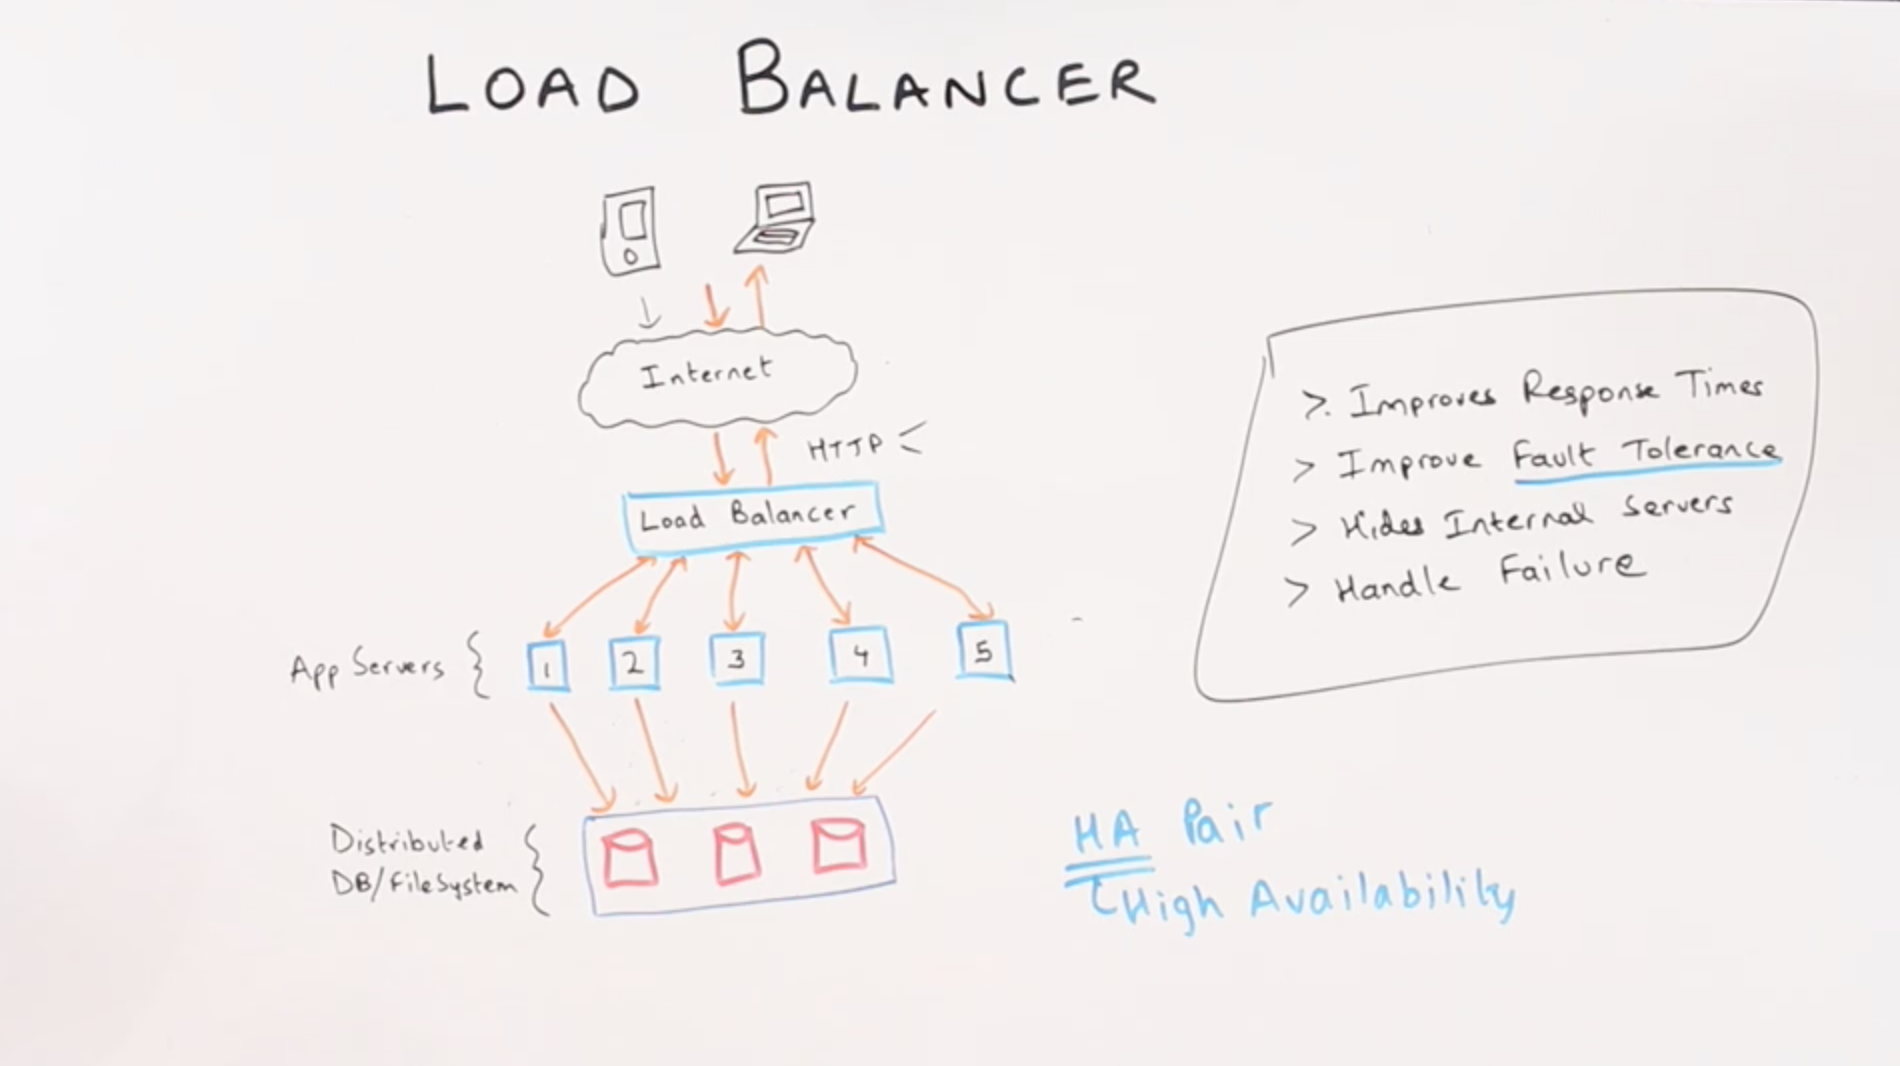 LOAD BALANCER
Internet
HTTP <
Load Balancer
App Servers { 1 2 3 4 5
Distributed
DB/FileSystem {
>. Improves Response Times
> Improve Fault Tolerance
> Hides Internal Servers
> Handle Failure
HA Pair
High Availability